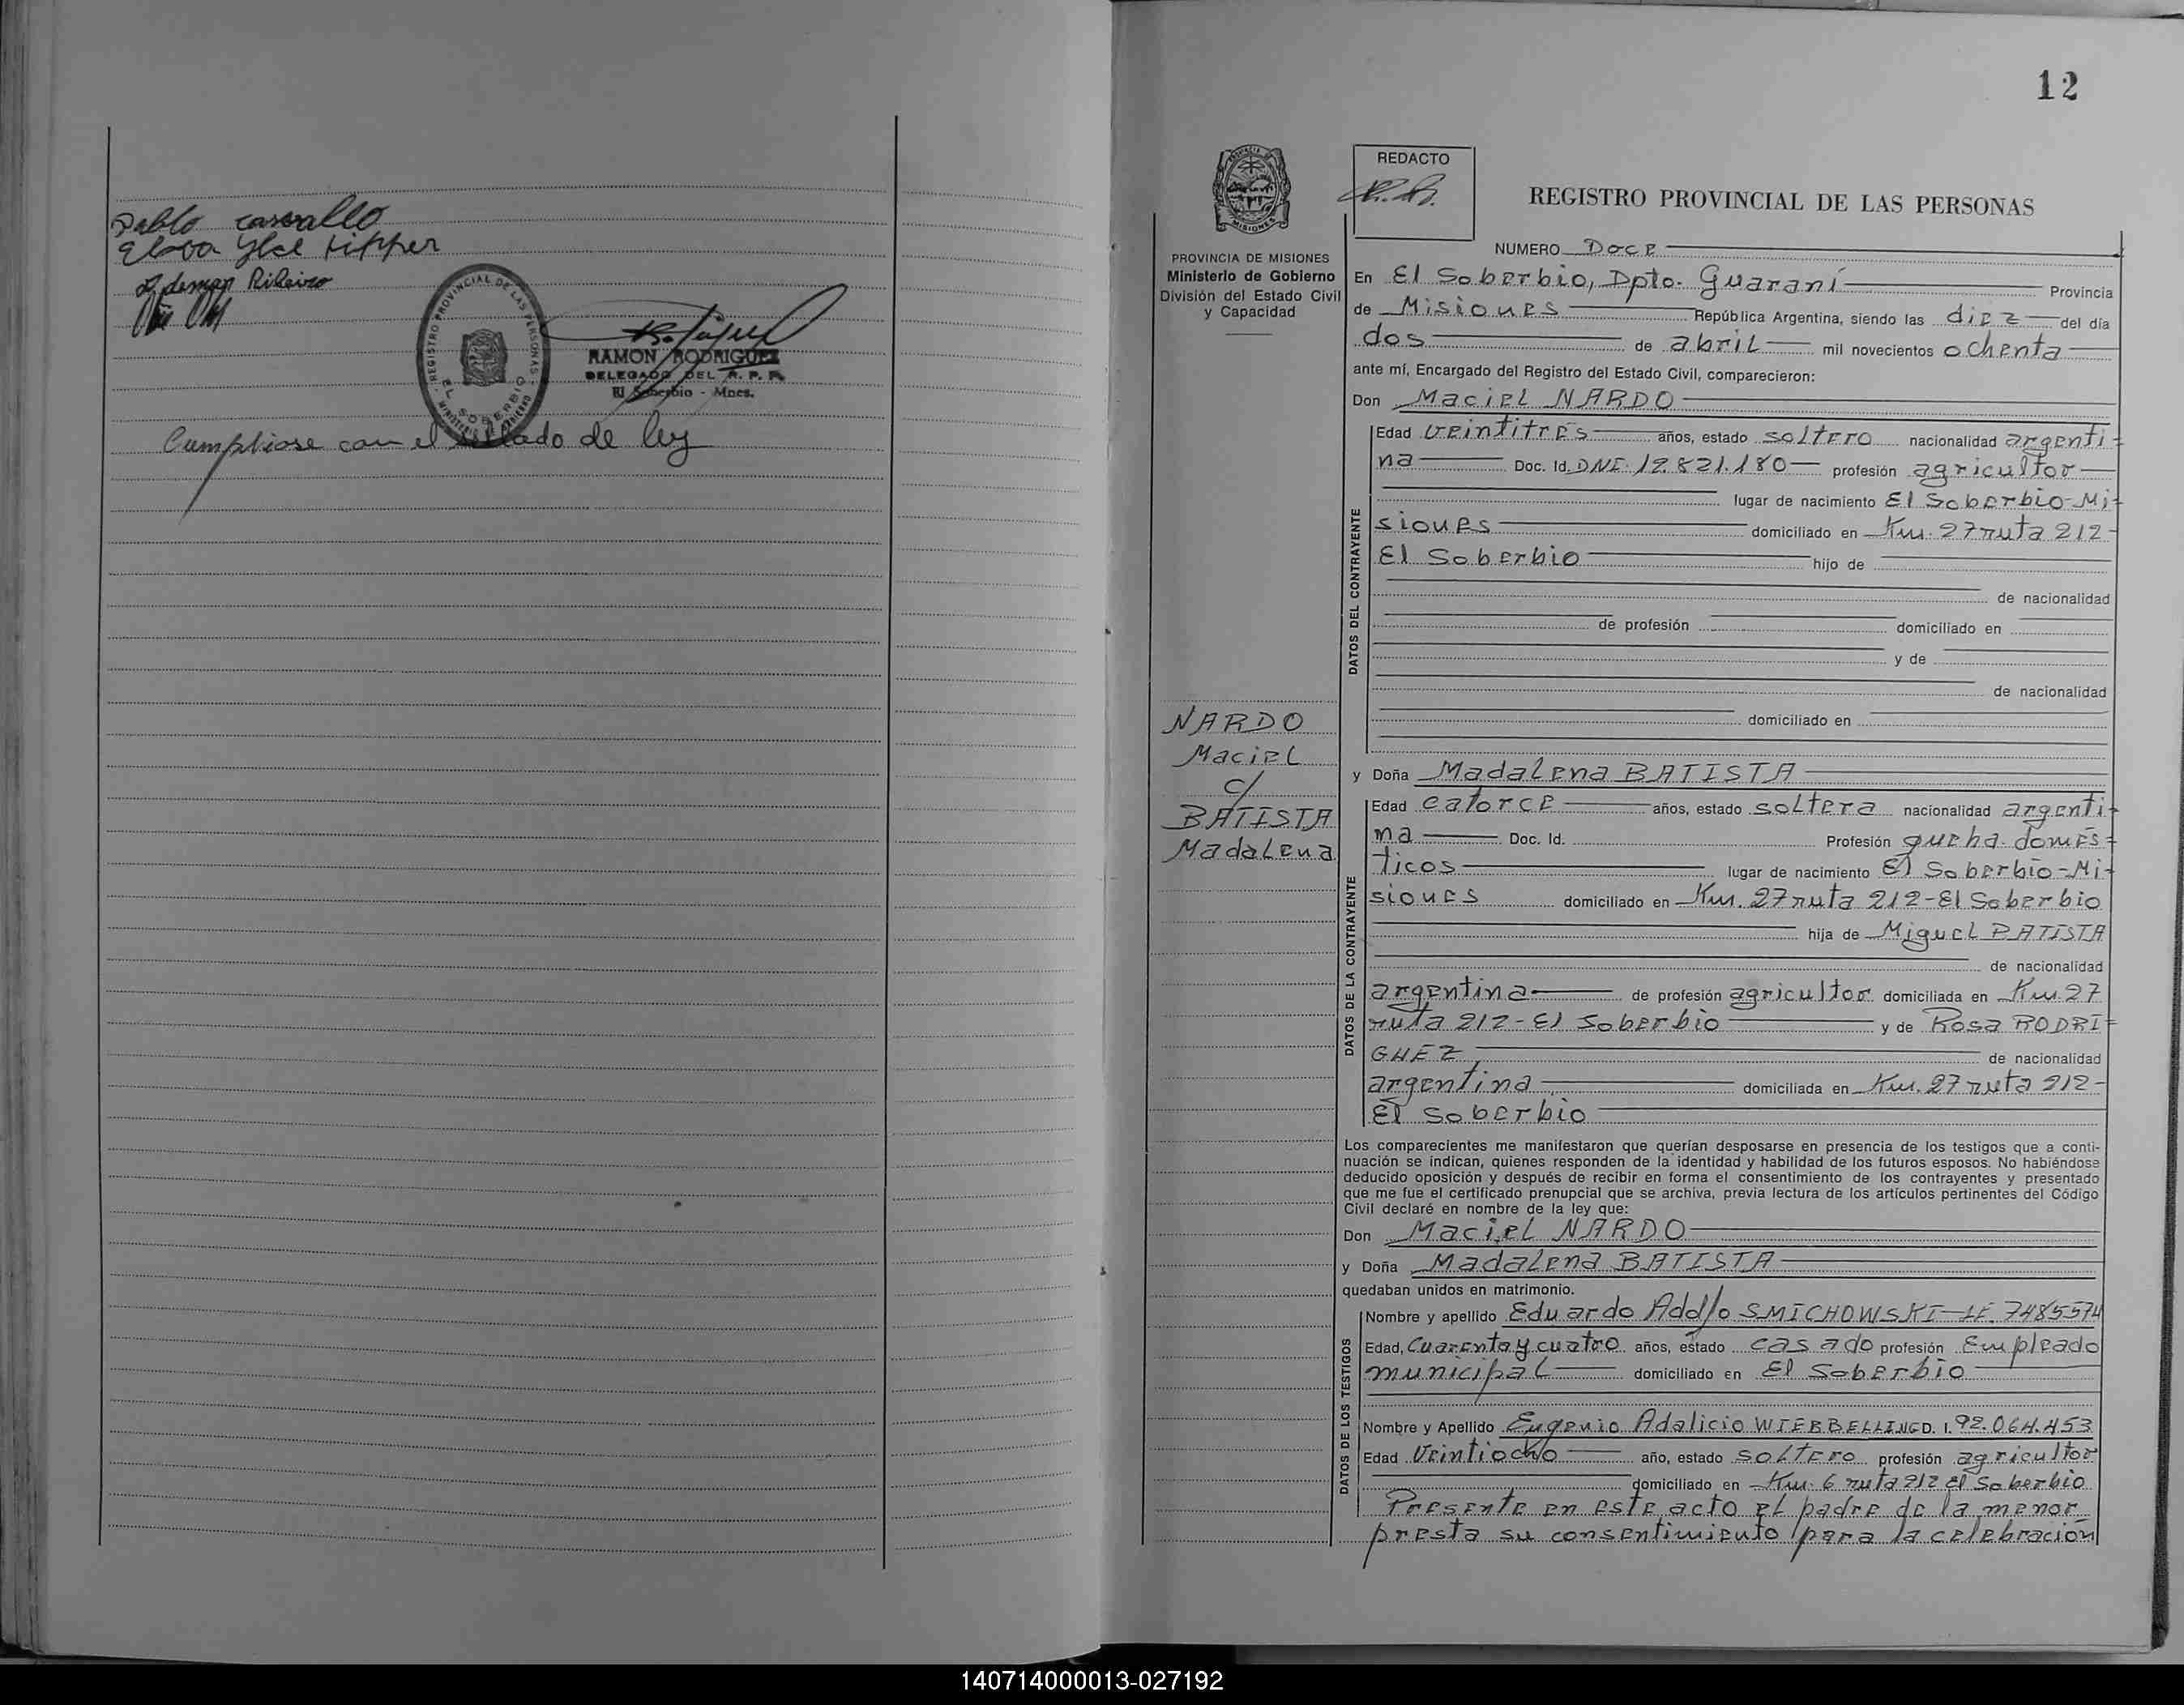 Pablo carvallo
Elova Ylse Kipper
Ldemar Ribeiro
REGISTRO PROVINCIAL DE LAS PERSONAS
EL SOBERBIO
MINISTERIO DE GOBIERNO
RAMON RODRIGUEZ
DELEGADO DEL R. P. P.
El Soberbio - Mnes.
Cumpliose con el sellado de ley
12
PROVINCIA DE MISIONES
Ministerio de Gobierno
División del Estado Civil
y Capacidad
NARDO
Maciel
c/
BATISTA
Madalena
REDACTO
REGISTRO PROVINCIAL DE LAS PERSONAS
NUMERO Doce
En El Soberbio, Dpto. Guaraní Provincia
de Misiones República Argentina, siendo las diez del día
dos de abril mil novecientos ochenta
ante mí, Encargado del Registro del Estado Civil, comparecieron:
Don Maciel NARDO
DATOS DEL CONTRAYENTE
Edad veintitres años, estado soltero nacionalidad argenti-
na Doc. Id. DNI. 12.821.180 profesión agricultor
lugar de nacimiento El Soberbio-Mi-
siones domiciliado en Km. 27 ruta 212-
El Soberbio hijo de
de nacionalidad
de profesión domiciliado en
y de
de nacionalidad
domiciliado en
y Doña Madalena BATISTA
DATOS DE LA CONTRAYENTE
Edad catorce años, estado soltera nacionalidad argenti-
na Doc. Id. Profesión queha. domés-
ticos lugar de nacimiento El Soberbio-Mi-
siones domiciliado en Km. 27 ruta 212-El Soberbio
hija de Miguel BATISTA
de nacionalidad
argentina de profesión agricultor domiciliada en Km. 27
ruta 212-El Soberbio y de Rosa RODRI-
GUEZ de nacionalidad
argentina domiciliada en Km. 27 ruta 212-
El Soberbio
Los comparecientes me manifestaron que querían desposarse en presencia de los testigos que a conti-
nuación se indican, quienes responden de la identidad y habilidad de los futuros esposos. No habiéndose
deducido oposición y después de recibir en forma el consentimiento de los contrayentes y presentado
que me fue el certificado prenupcial que se archiva, previa lectura de los artículos pertinentes del Código
Civil declaré en nombre de la ley que:
Don Maciel NARDO
y Doña Madalena BATISTA
quedaban unidos en matrimonio.
DATOS DE LOS TESTIGOS
Nombre y apellido Eduardo Adolfo SMICHOWSKI-LE. 7485574
Edad, Cuarenta y cuatro años, estado casado profesión Empleado
municipal domiciliado en El Soberbio
Nombre y Apellido Eugenio Adalicio WIEBBELLING D. I. 92.064.453
Edad Veintiocho año, estado soltero profesión agricultor
domiciliado en Km. 6 ruta 212 El Soberbio
Presente en este acto el padre de la menor
presta su consentimiento para la celebración
140714000013-027192